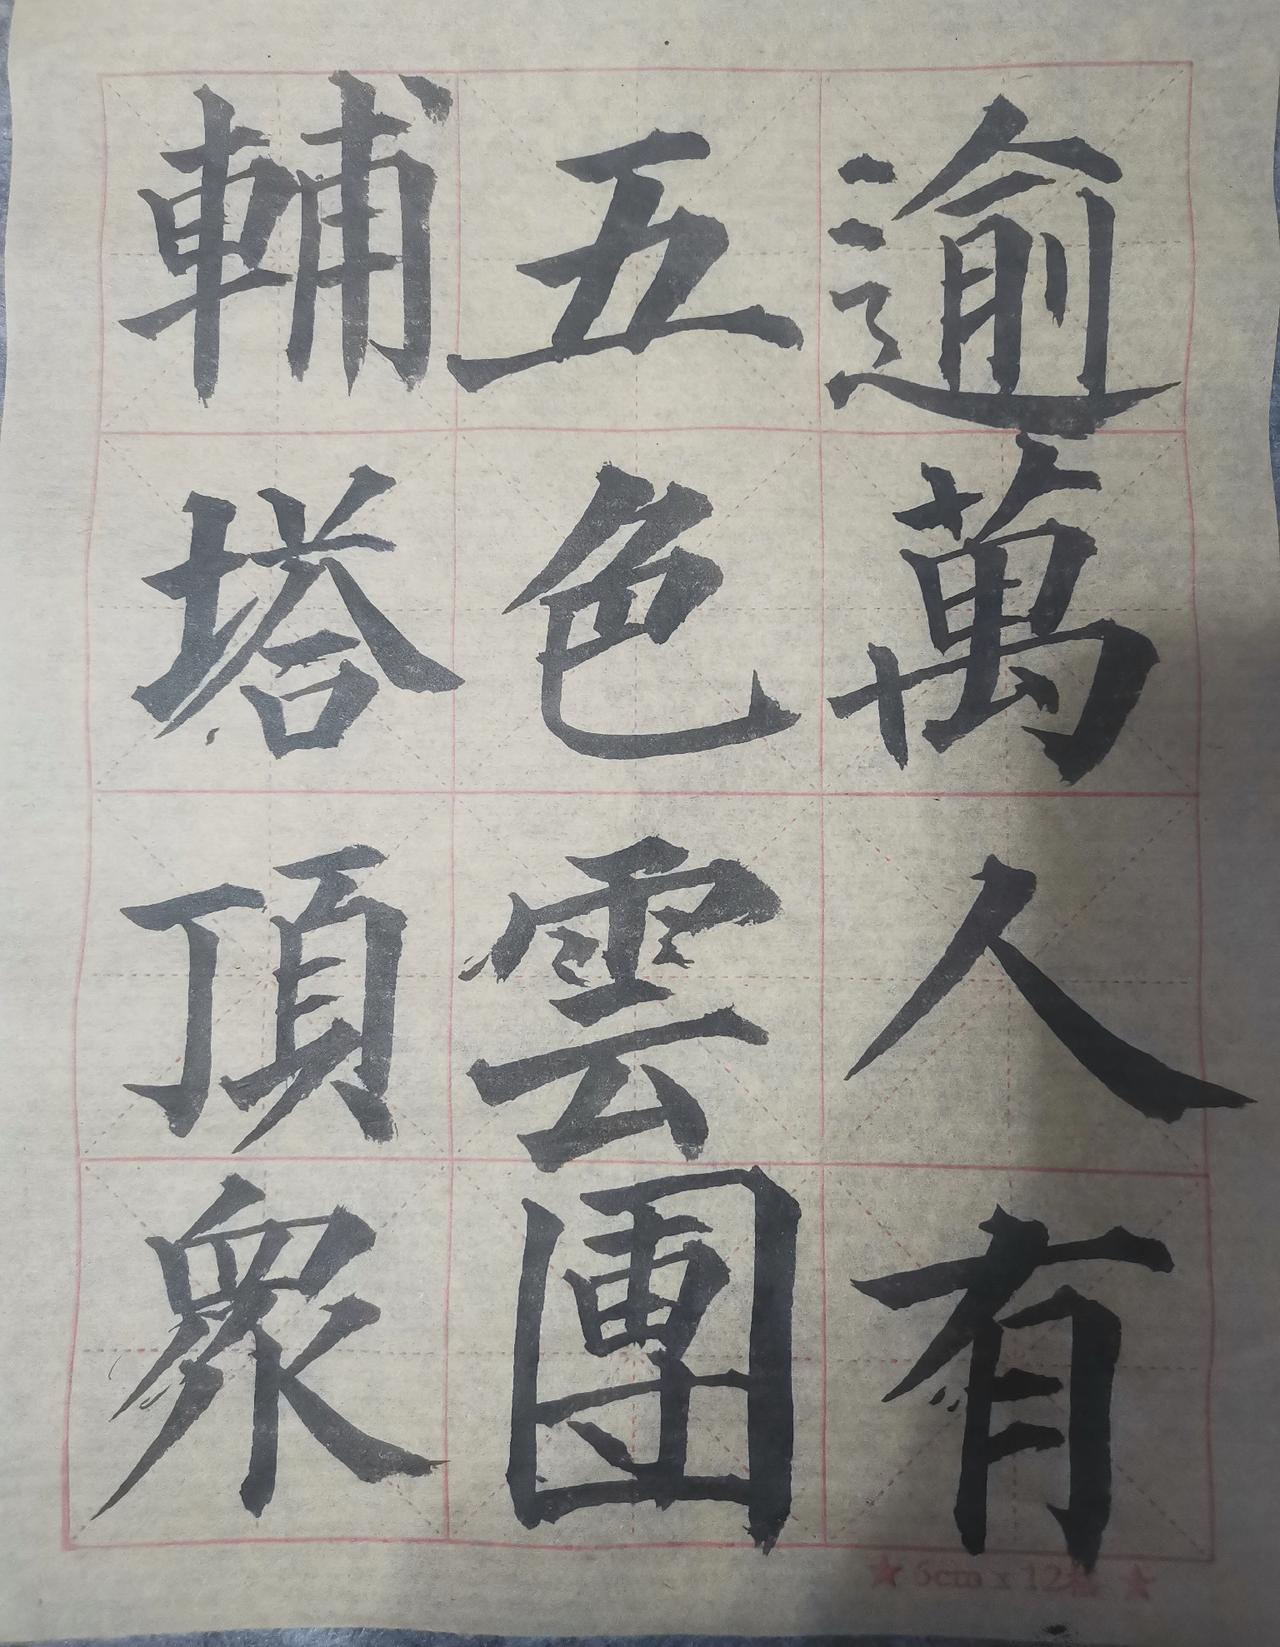 逾萬人有
五色雲團
輔塔頂衆
★ 6cm x 12格 ★